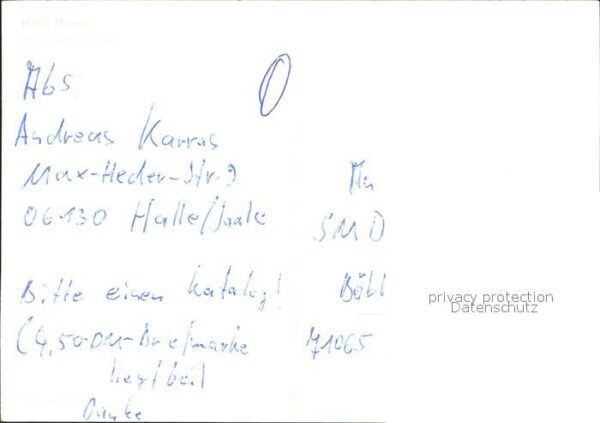 Halle (Saale)
Abs.
Andreas Karras
Max-Heder-Str. 9
06130 Halle/Saale
Bitte einen Katalog!
(4,50-DM-Briefmarke
liegt bei)
Danke
An
SMD
Böbl
71065
privacy protection
Datenschutz